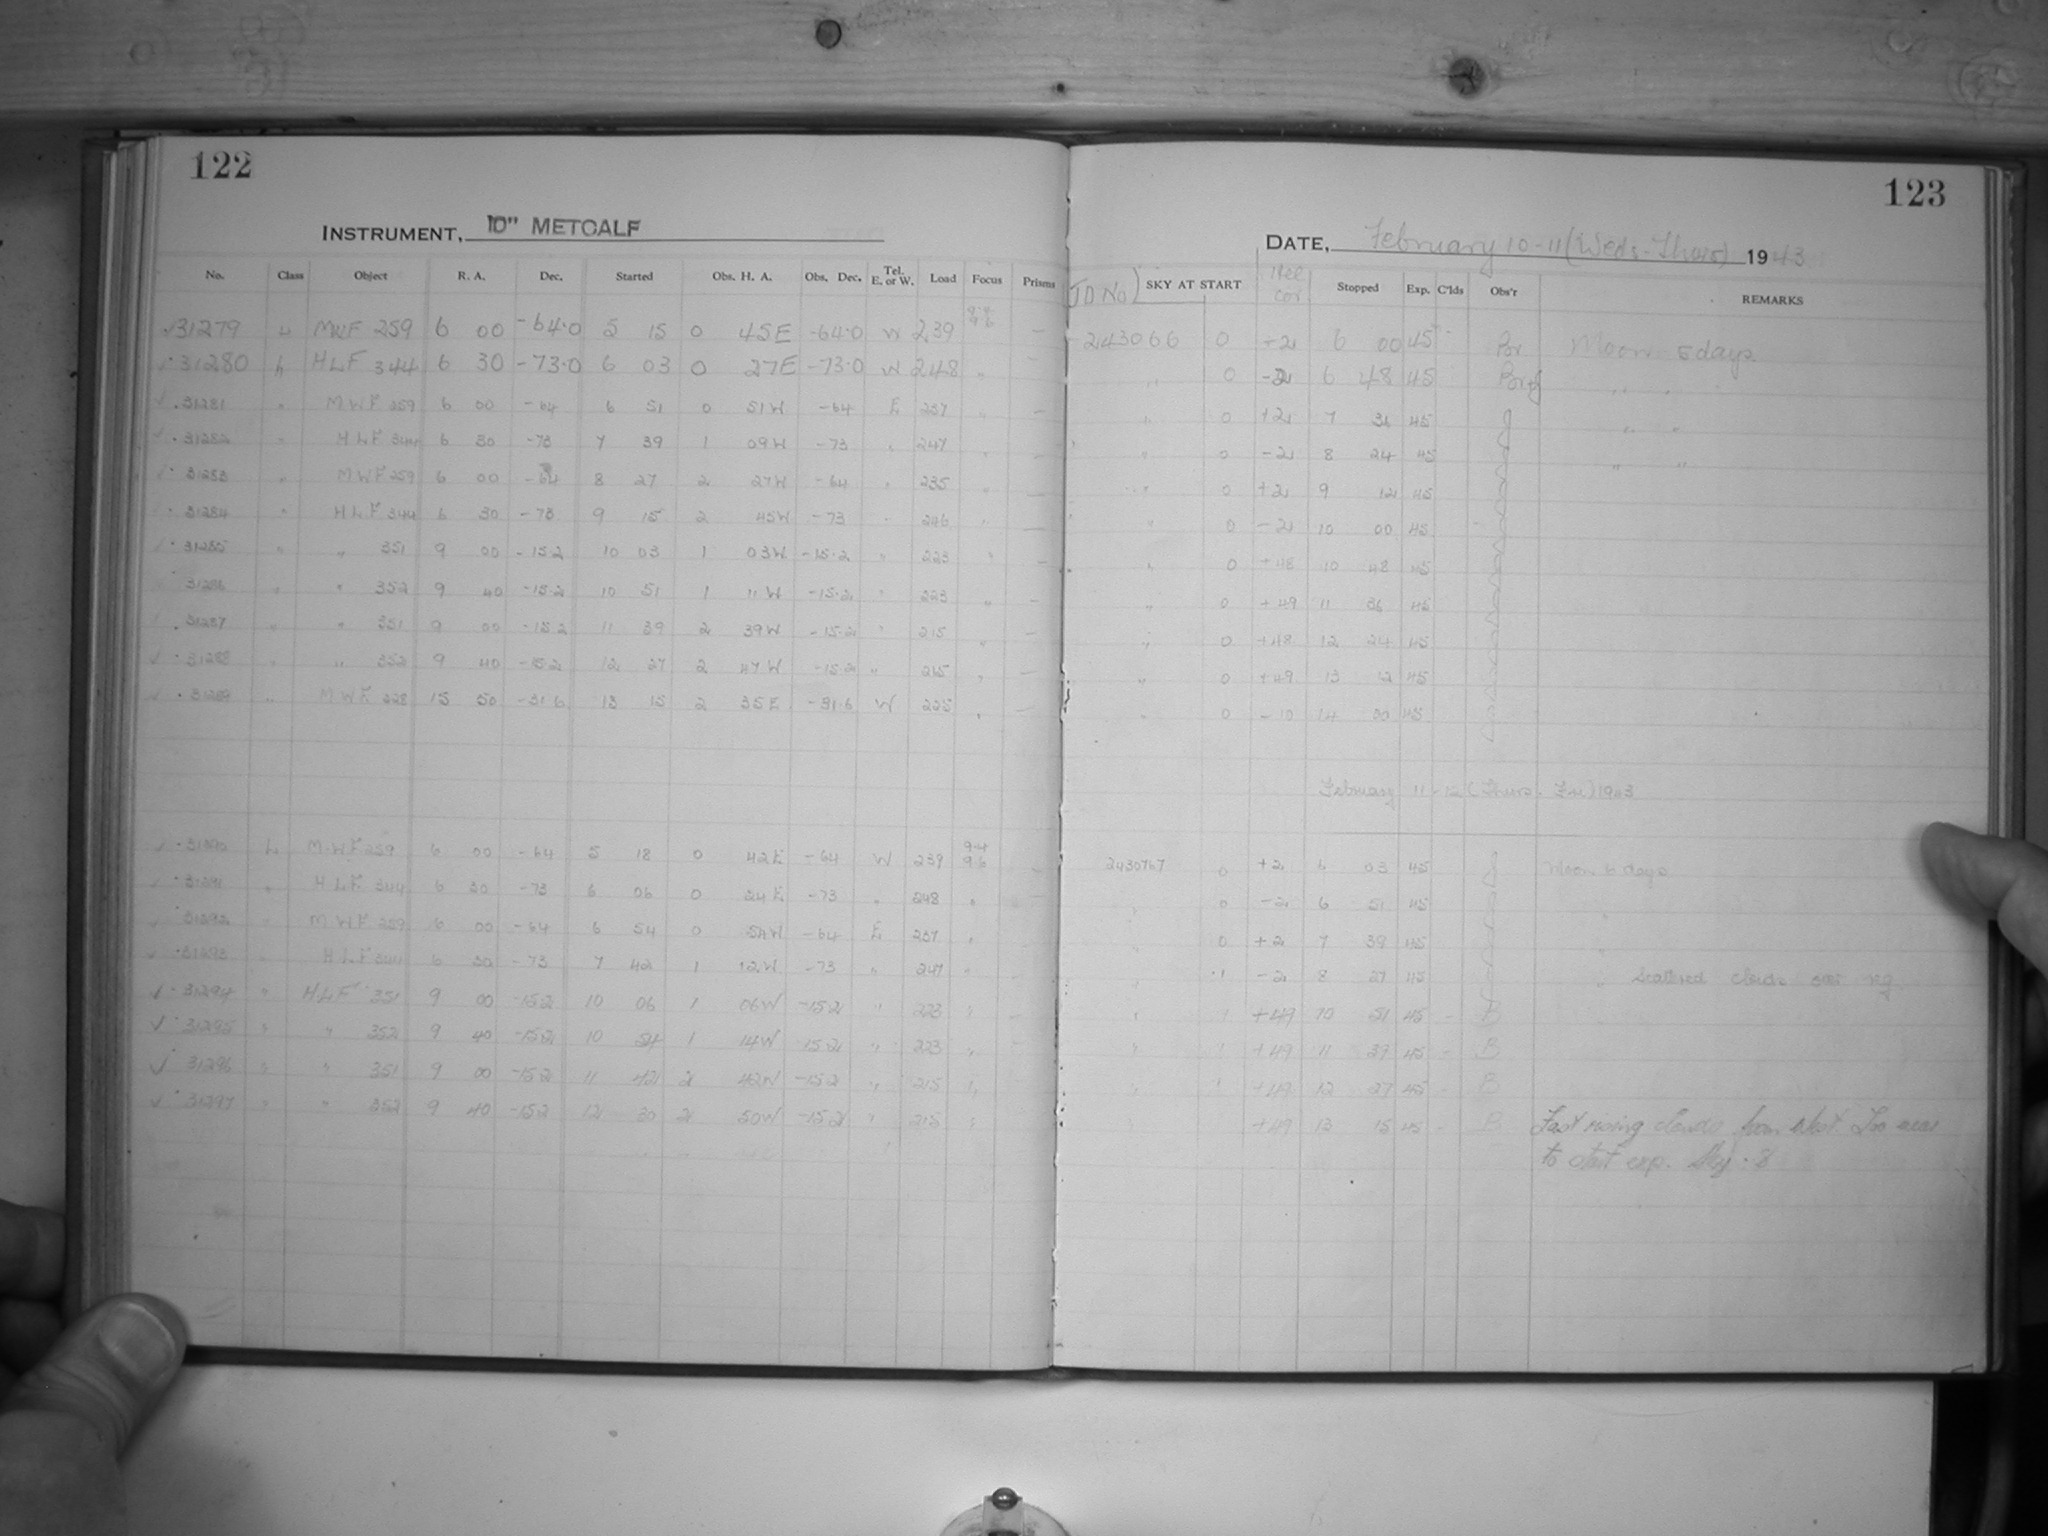 122
INSTRUMENT, 10" METCALF
No. Class Object R. A. Dec. Started Obs. H. A. Obs. Dec. Tel. E. or W. Load Focus Prisms
31279 MWF 259 6 00 -64.0 5 15 0 45E -64.0 W 239
31280 HLF 344 6 30 -73.0 6 03 0 27E -73.0 W 248 "
31281 " MWF 259 6 00 -64 6 51 0 51W -64 E 237 "
31282 " HLF 344 6 30 -73 7 39 1 09W -73 " 247 "
31283 " MWF 259 6 00 -64 8 27 2 27W -64 " 235 "
31284 " HLF 344 6 30 -73 9 15 2 45W -73 " 246 "
31285 " " 351 9 00 -15.2 10 03 1 03W -15.2 " 223 "
31286 " " 352 9 40 -15.2 10 51 1 11W -15.2 " 223 "
31287 " " 351 9 00 -15.2 11 39 2 39W -15.2 " 215 "
31288 " " 352 9 40 -15.2 12 27 2 47W -15.2 " 215 "
31289 " MWF 228 15 50 -31.6 13 15 2 35E -31.6 W 225 "
31290 L MWF 259 6 00 -64 5 18 0 42E -64 W 239 9.4 9.6
31291 " HLF 344 6 30 -73 6 06 0 24E -73 " 248 "
31292 " MWF 259 6 00 -64 6 54 0 54W -64 E 237 "
31293 " HLF 344 6 30 -73 7 42 1 12W -73 " 247 "
31294 " HLF 351 9 00 -15.2 10 06 1 06W -15.2 " 223 "
31295 " " 352 9 40 -15.2 10 54 1 14W -15.2 " 223 "
31296 " " 351 9 00 -15.2 11 42 2 42W -15.2 " 215 "
31297 " " 352 9 40 -15.2 12 30 2 50W -15.2 " 215 "
123
DATE, February 10-11 (Weds-Thurs) 1943
JD No SKY AT START Stopped Exp. C'lds Obs'r REMARKS
0 -2 6 00 45 Moon 5 days
" 0 -2 6 48 45 " "
" 0 +2 7 36 45 " "
" 0 -2 8 24 45 " "
" 0 +2 9 12 45
" 0 -2 10 00 45
" 0 +48 10 48 45
" 0 +49 11 36 45
" 0 +48 12 24 45
" 0 +49 13 12 45
" 0 -10 14 00 45
February 11-12 (Thurs-Fri) 1943
0 +2 6 03 45 Moon 6 days
" 0 -2 6 51 45 "
" 0 +2 7 39 45 "
" .1 -2 8 27 45 " Scattered clouds over sky
" " +49 10 51 45 - B
" " +49 11 39 45 - B
" " +49 12 27 45 - B
+49 13 15 45 - B Fast rising clouds from West. Too near
to start exp. Sky .8